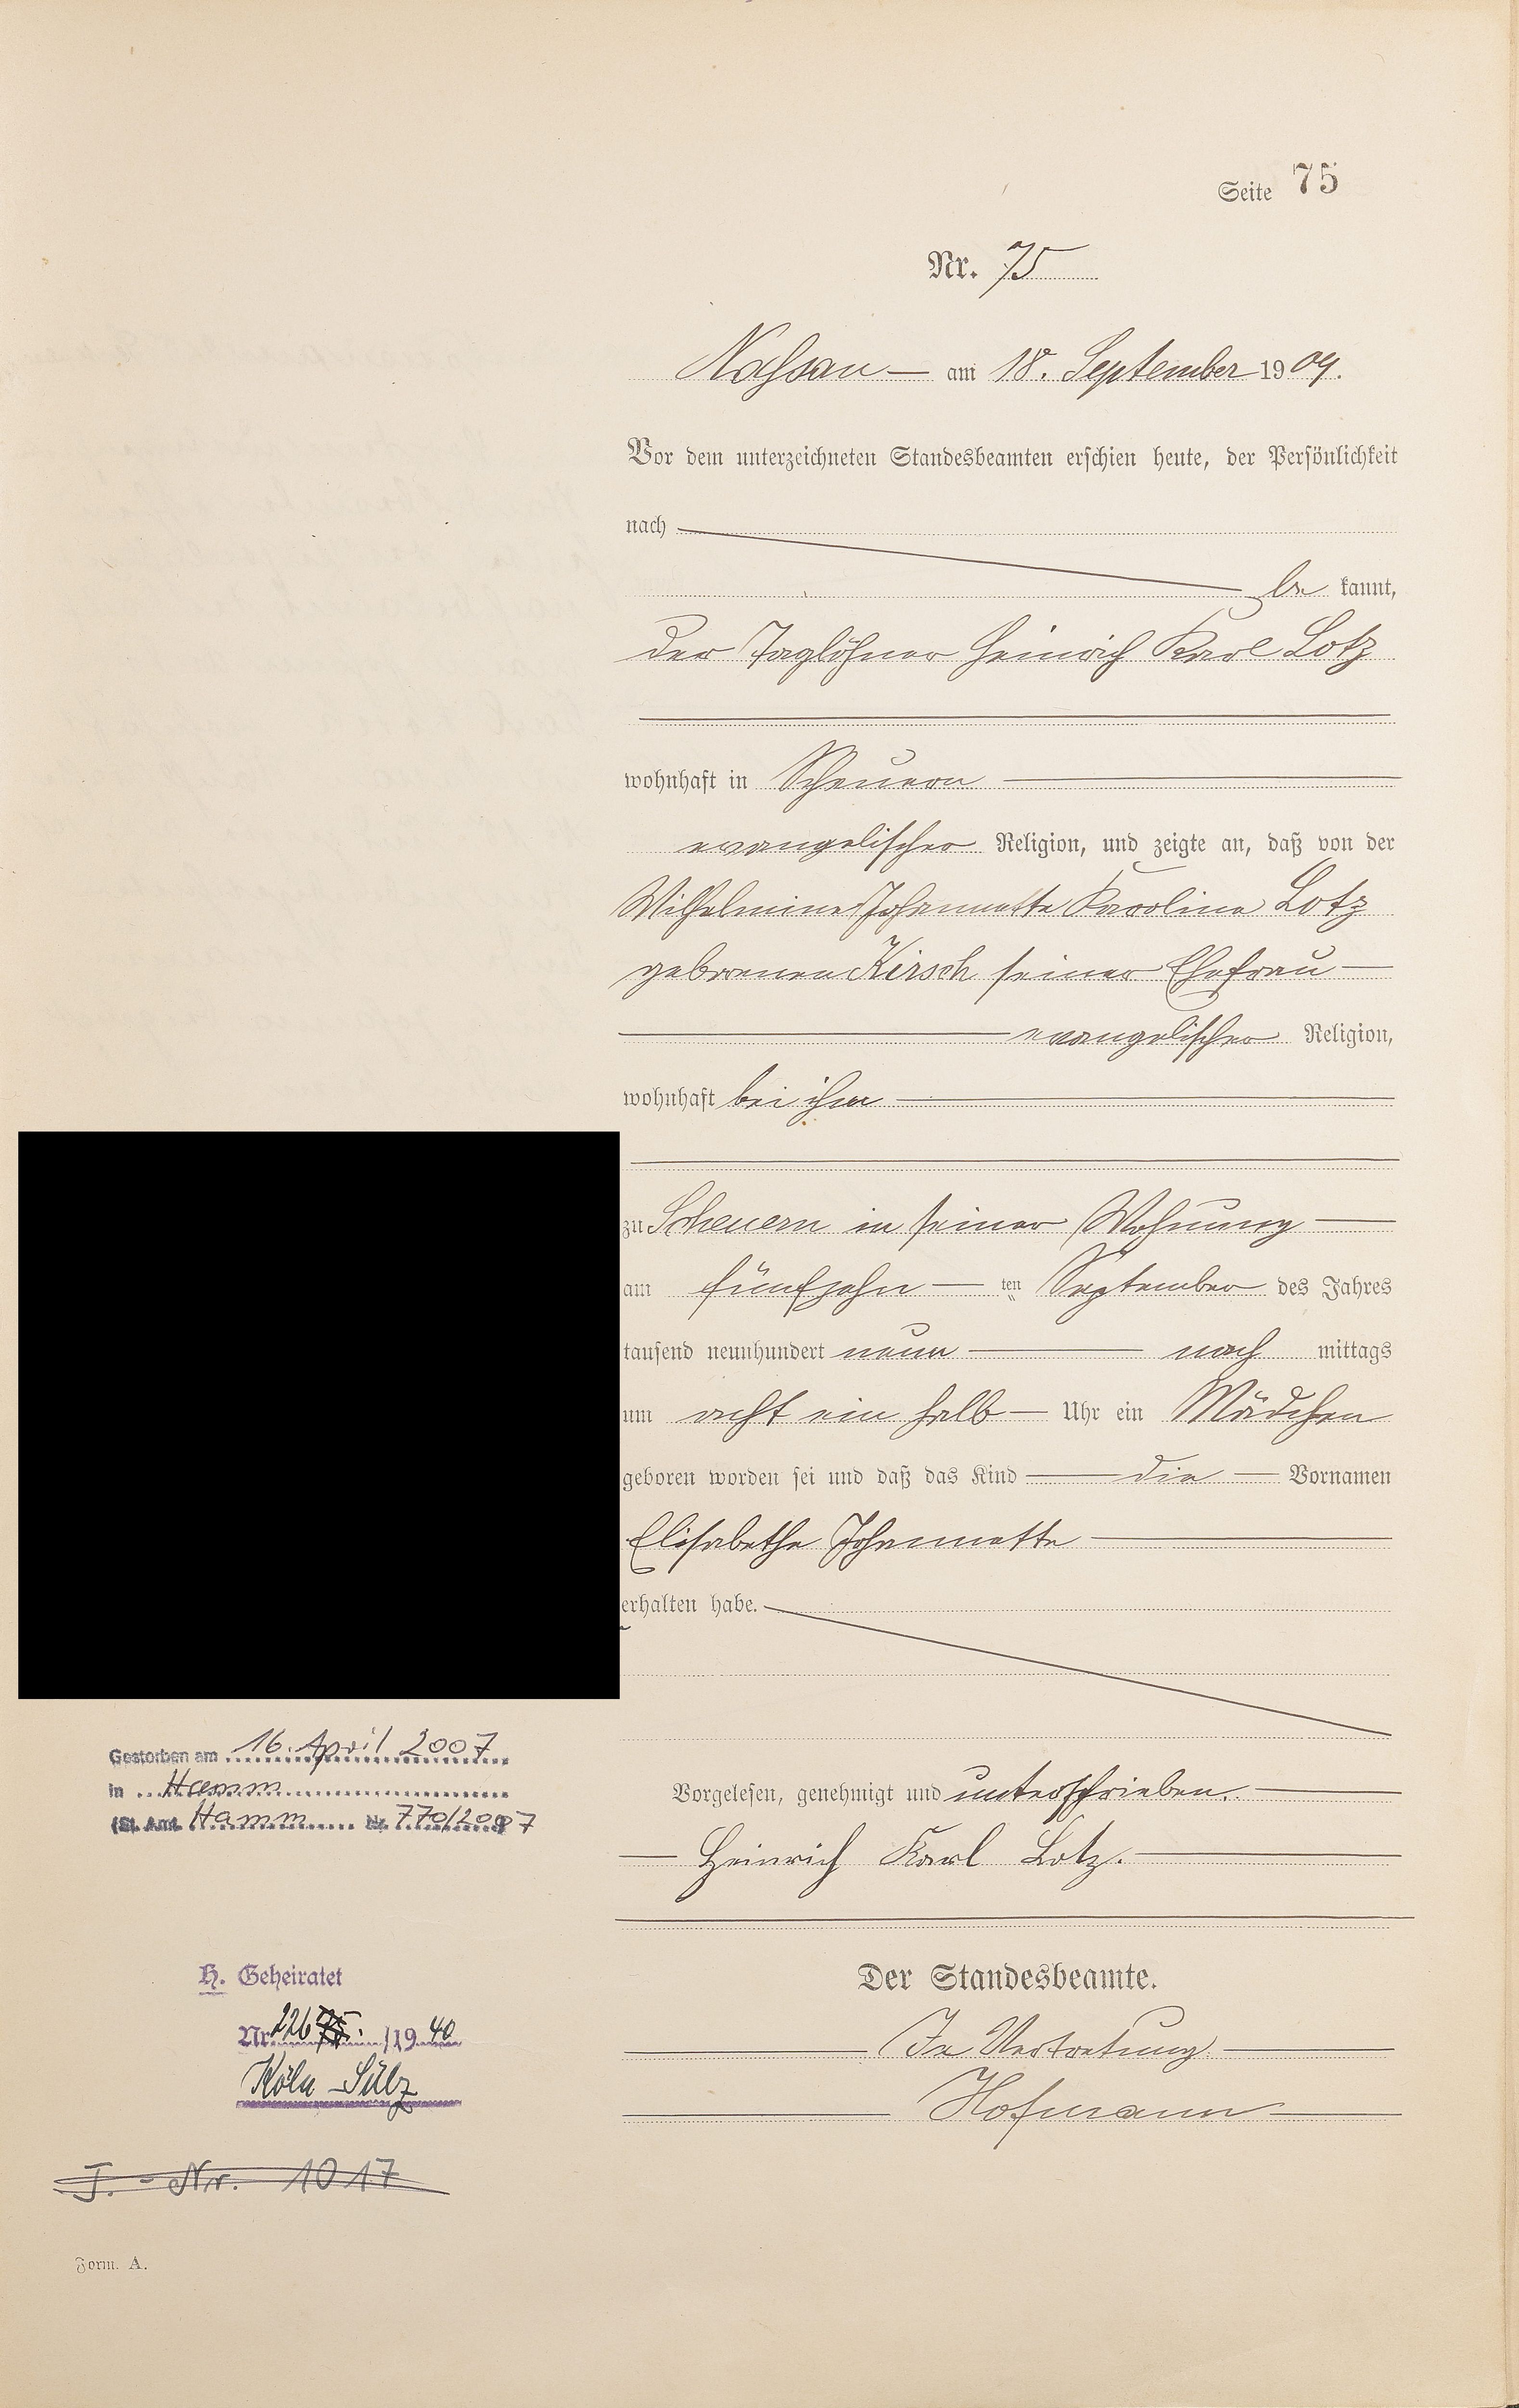 Seite 75
Nr. 75
Nassau — am 18. September 1909.
Vor dem unterzeichneten Standesbeamten erschien heute, der Persönlichkeit
nach
be kannt,
der Taglöhner Heinrich Karl Lotz
wohnhaft in Scheuern
evangelischer Religion, und zeigte an, daß von der
Wilhelmine Johannette Karoline Lotz
geborenen Kirsch seiner Ehefrau —
evangelischer Religion,
wohnhaft bei ihm
zu Scheuern in seiner Wohnung —
am fünfzehn — ten September des Jahres
tausend neunhundert neun — nach mittags
um acht ein halb — Uhr ein Mädchen
geboren worden sei und daß das Kind — die — Vornamen
Elisabethe Johannette
erhalten habe.
Vorgelesen, genehmigt und unterschrieben.
Heinrich Karl Lotz.
Der Standesbeamte.
In Vertretung
Hofmann
Gestorben am 16. April 2007
in Hamm
(St. Amt Hamm Nr. 770/2007
H. Geheiratet
Nr. 226 75. /19 40
Köln-Sülz
J.-Nr. 1017
Form. A.